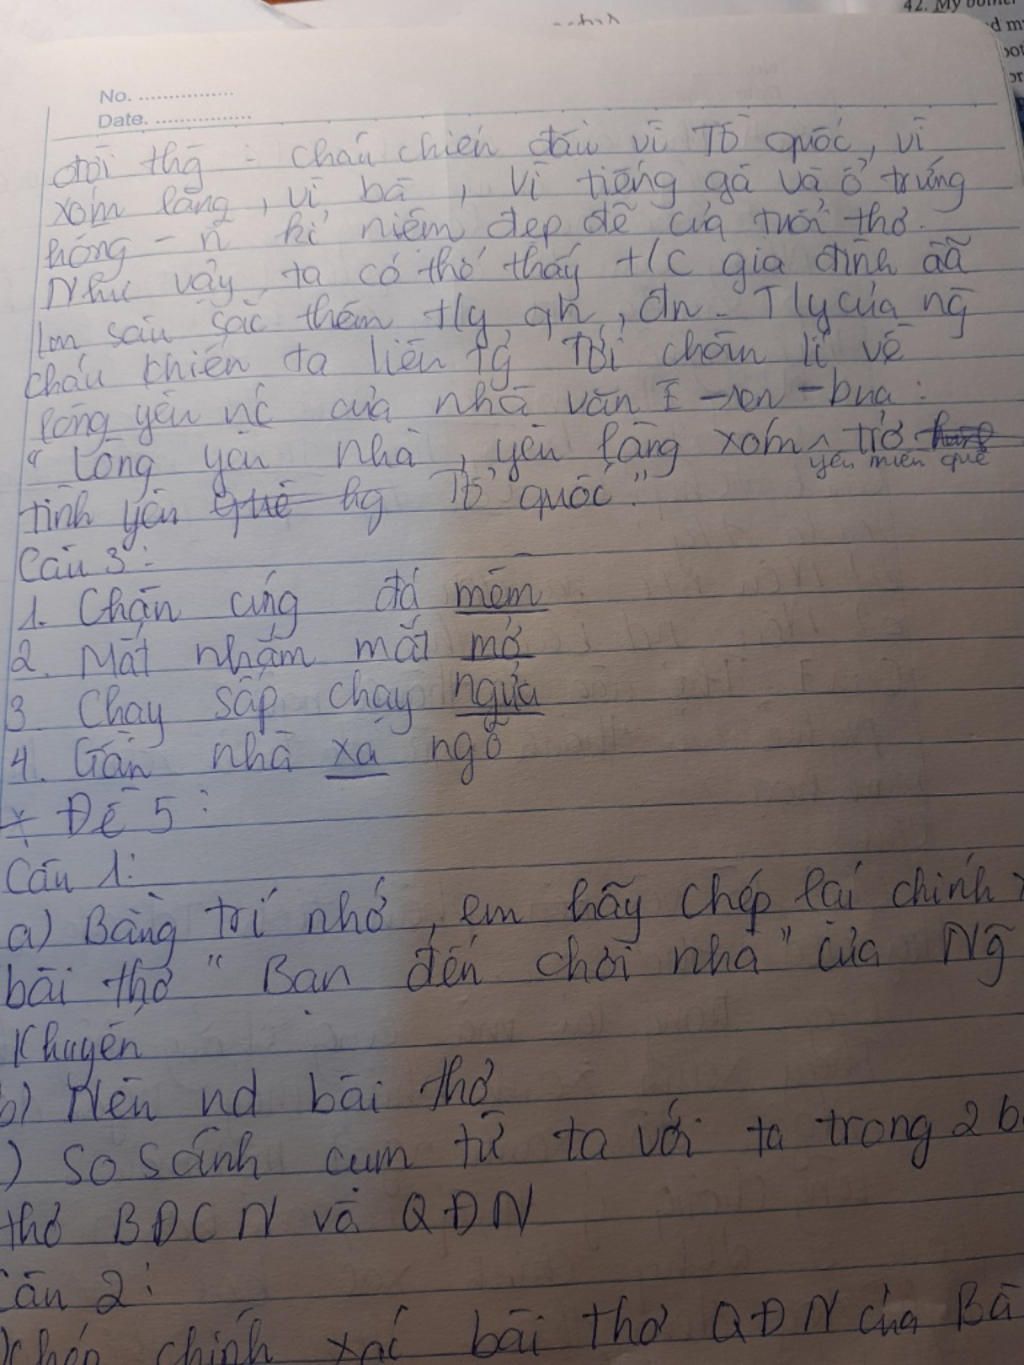 42. My
No. ................
Date. ................
đời thg - cháu chiến đấu vì Tổ quốc, vì
xóm làng, vì bà, vì tiếng gà và ổ trứng
hồng - n~ kỉ niệm đẹp đẽ của tuổi thơ.
Như vậy, ta có thể thấy t/c gia đình đã
làm sâu sắc thêm t/y qh, đn. T/y của ng
cháu khiến ta liên tg tới chân lí về
lòng yêu nc của nhà văn I-ren-bua:
"Lòng yêu nhà, yêu làng xóm, trở
yêu miền quê
tình yêu Tổ quốc"
Câu 3:
1. Chân cứng đá mềm
2. Mắt nhắm mắt mở
3 Chạy sấp chạy ngửa
4. Gần nhà xa ngõ
* Đề 5:
Câu 1:
a) Bằng trí nhớ, em hãy chép lại chính
bài thơ "Bạn đến chơi nhà" của Ng~
Khuyến
b) Nêu nd bài thơ
) So sánh cụm từ ta với ta trong 2 b
thơ BĐCN và QĐN
Câu 2:
chép chính xác bài thơ QĐN của Bà